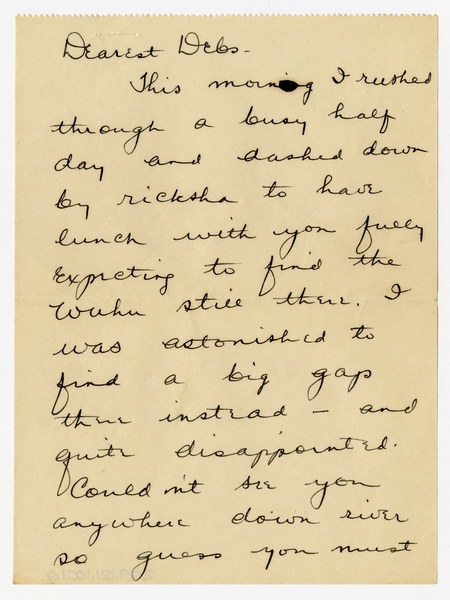 Dearest Debs -
This morning I rushed
through a busy half
day and dashed down
by ricksha to have
lunch with you fully
expecting to find the
Wuhu still there. I
was astonished to
find a big gap
there instead - and
quite disappointed.
Could n't see you
anywhere down river
so guess you must